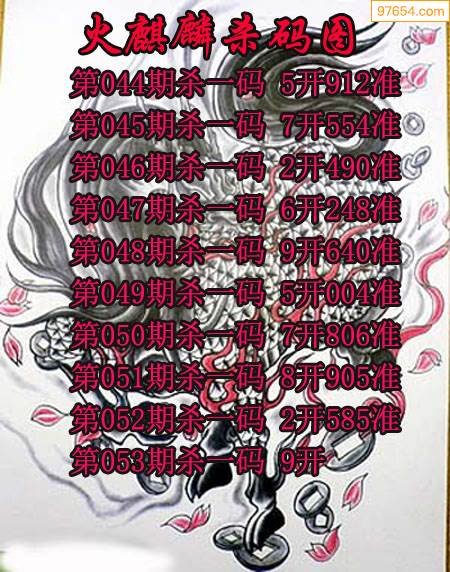 97654.com
火麒麟杀码图
第044期杀一码 5开912准
第045期杀一码 7开554准
第046期杀一码 2开490准
第047期杀一码 6开248准
第048期杀一码 9开640准
第049期杀一码 5开004准
第050期杀一码 7开806准
第051期杀一码 8开905准
第052期杀一码 2开585准
第053期杀一码 9开